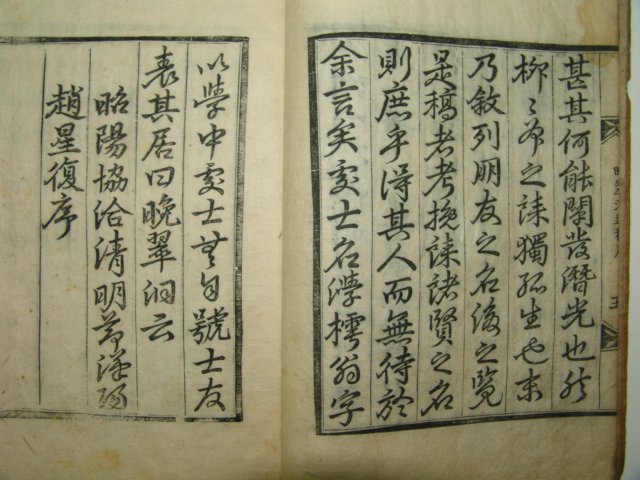 甚其何能闡發潛光也然
柳〻州之誄獨孤生也末
乃敘列朋友之名後之覽
是稿者考挽誄諸賢之名
則庶乎得其人而無待於
余言矣處士名樗翁字
以學中處士無自號士友
表其居曰晚翠洞云
昭陽協洽清明節漢陽
趙星復序
五